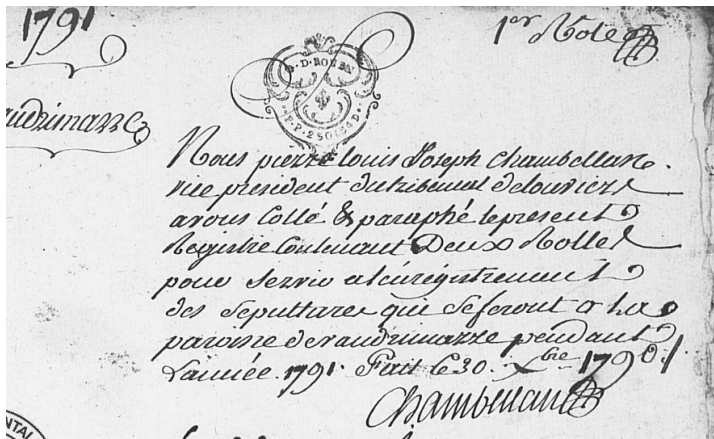 1791
1er Role
G.D.ROUEN
P.P.2SOLS4D
audrimare
Nous pierre Louis Joseph Chambellan
vice president du tribunal de louviers
avons Cotté & paraphé le present
Registre Contenant Deux Rolles
pour servir a l'enregistrement
des sepultures qui se feront a La
paroisse de vaudrimare pendant
L'année 1791. Fait le 30. Xbre 1790./
Chambellan
NTAL